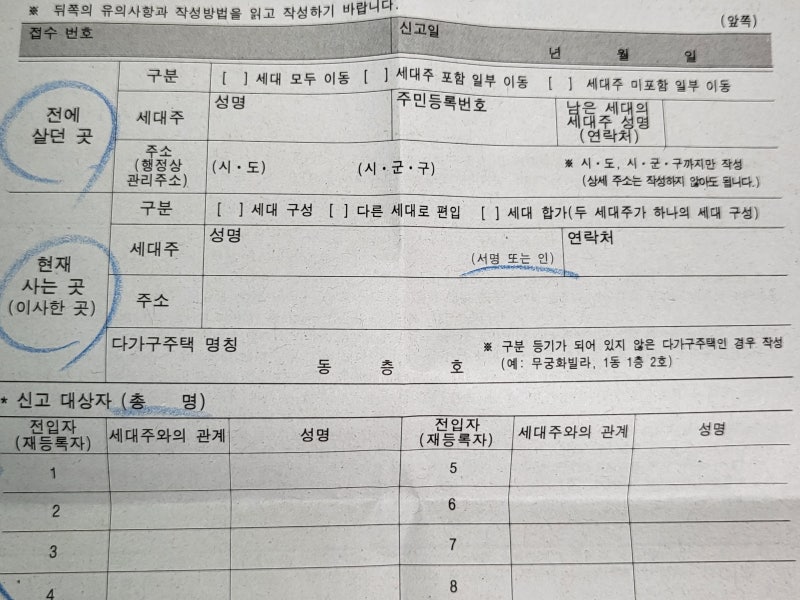 ※ 뒤쪽의 유의사항과 작성방법을 읽고 작성하기 바랍니다.
(앞쪽)
접수 번호
신고일
년 월 일
전에
살던 곳
구분
[ ] 세대 모두 이동 [ ] 세대주 포함 일부 이동 [ ] 세대주 미포함 일부 이동
세대주
성명
주민등록번호
남은 세대의
세대주 성명
(연락처)
주소
(행정상
관리주소)
(시·도) (시·군·구)
※ 시·도, 시·군·구까지만 작성
(상세 주소는 작성하지 않아도 됩니다.)
현재
사는 곳
(이사한 곳)
구분
[ ] 세대 구성 [ ] 다른 세대로 편입 [ ] 세대 합가(두 세대주가 하나의 세대 구성)
세대주
성명
(서명 또는 인)
연락처
주소
다가구주택 명칭
동 층 호
※ 구분 등기가 되어 있지 않은 다가구주택인 경우 작성
(예: 무궁화빌라, 1동 1층 2호)
* 신고 대상자 (총 명)
전입자
(재등록자)
세대주와의 관계
성명
전입자
(재등록자)
세대주와의 관계
성명
1
5
2
6
3
7
4
8